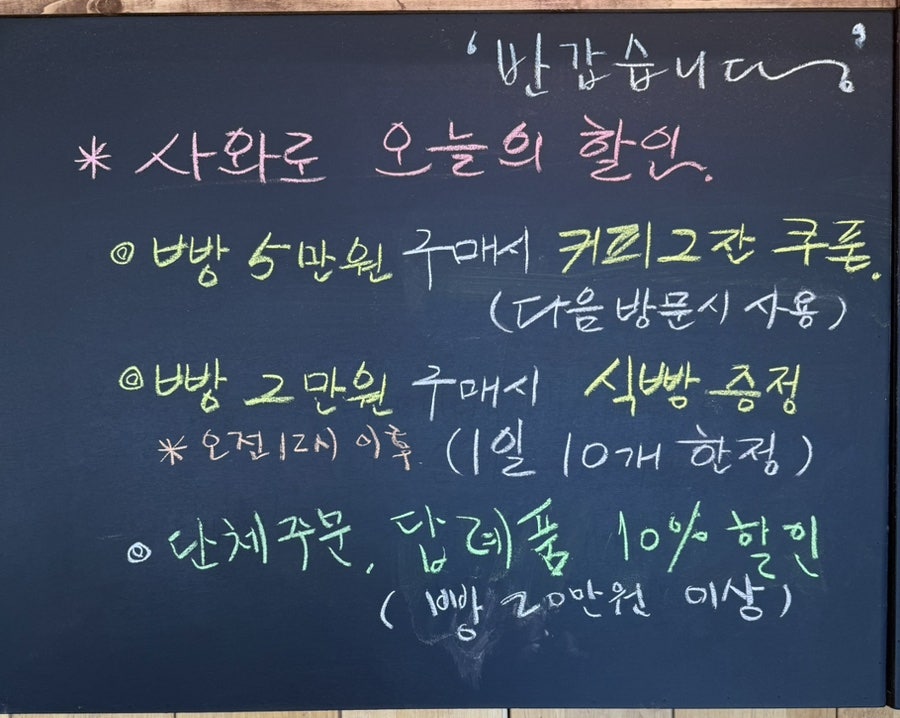 '반갑습니다'
* 사와로 오늘의 할인.
◎ 빵 5만원 구매시 커피 2잔 쿠폰.
(다음 방문시 사용)
◎ 빵 2만원 구매시 식빵 증정
* 오전12시 이후 (1일 10개 한정)
◎ 단체주문, 답례품 10% 할인
(빵 20만원 이상)